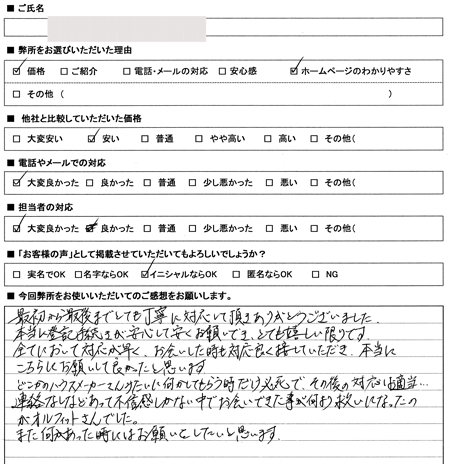 ■ ご氏名
■ 弊所をお選びいただいた理由
☑ 価格 □ ご紹介 □ 電話・メールの対応 □ 安心感 ☑ ホームページのわかりやすさ
□ その他 ( )
■ 他社と比較していただいた価格
□ 大変安い ☑ 安い □ 普通 □ やや高い □ 高い □ その他(
■ 電話やメールでの対応
☑ 大変良かった □ 良かった □ 普通 □ 少し悪かった □ 悪い □ その他(
■ 担当者の対応
☑ 大変良かった ☑ 良かった □ 普通 □ 少し悪かった □ 悪い □ その他(
■ 「お客様の声」として掲載させていただいてもよろしいでしょうか？
□ 実名でOK □ 名字ならOK ☑ イニシャルならOK □ 匿名ならOK □ NG
■ 今回弊所をお使いいただいてのご感想をお願いします。
最初から最後までとても丁寧に対応して頂きありがとうございました。
本当に登記手続きが安心して安くお願いでき、とても嬉しい限りです。
全てにおいて対応が早く、お会いした時も対応良く接していただき、本当に
こちらにお願いして良かったと思います
どこかのハウスメーカーさんみたいに何かしてもらう時だけ必死で、その後の対応は適当…
連絡なしなどあって不信感しかない中でお会いできた事が何より救いになったの
がオルフィットさんでした。
また何かあった時にはお願いしたいと思います。